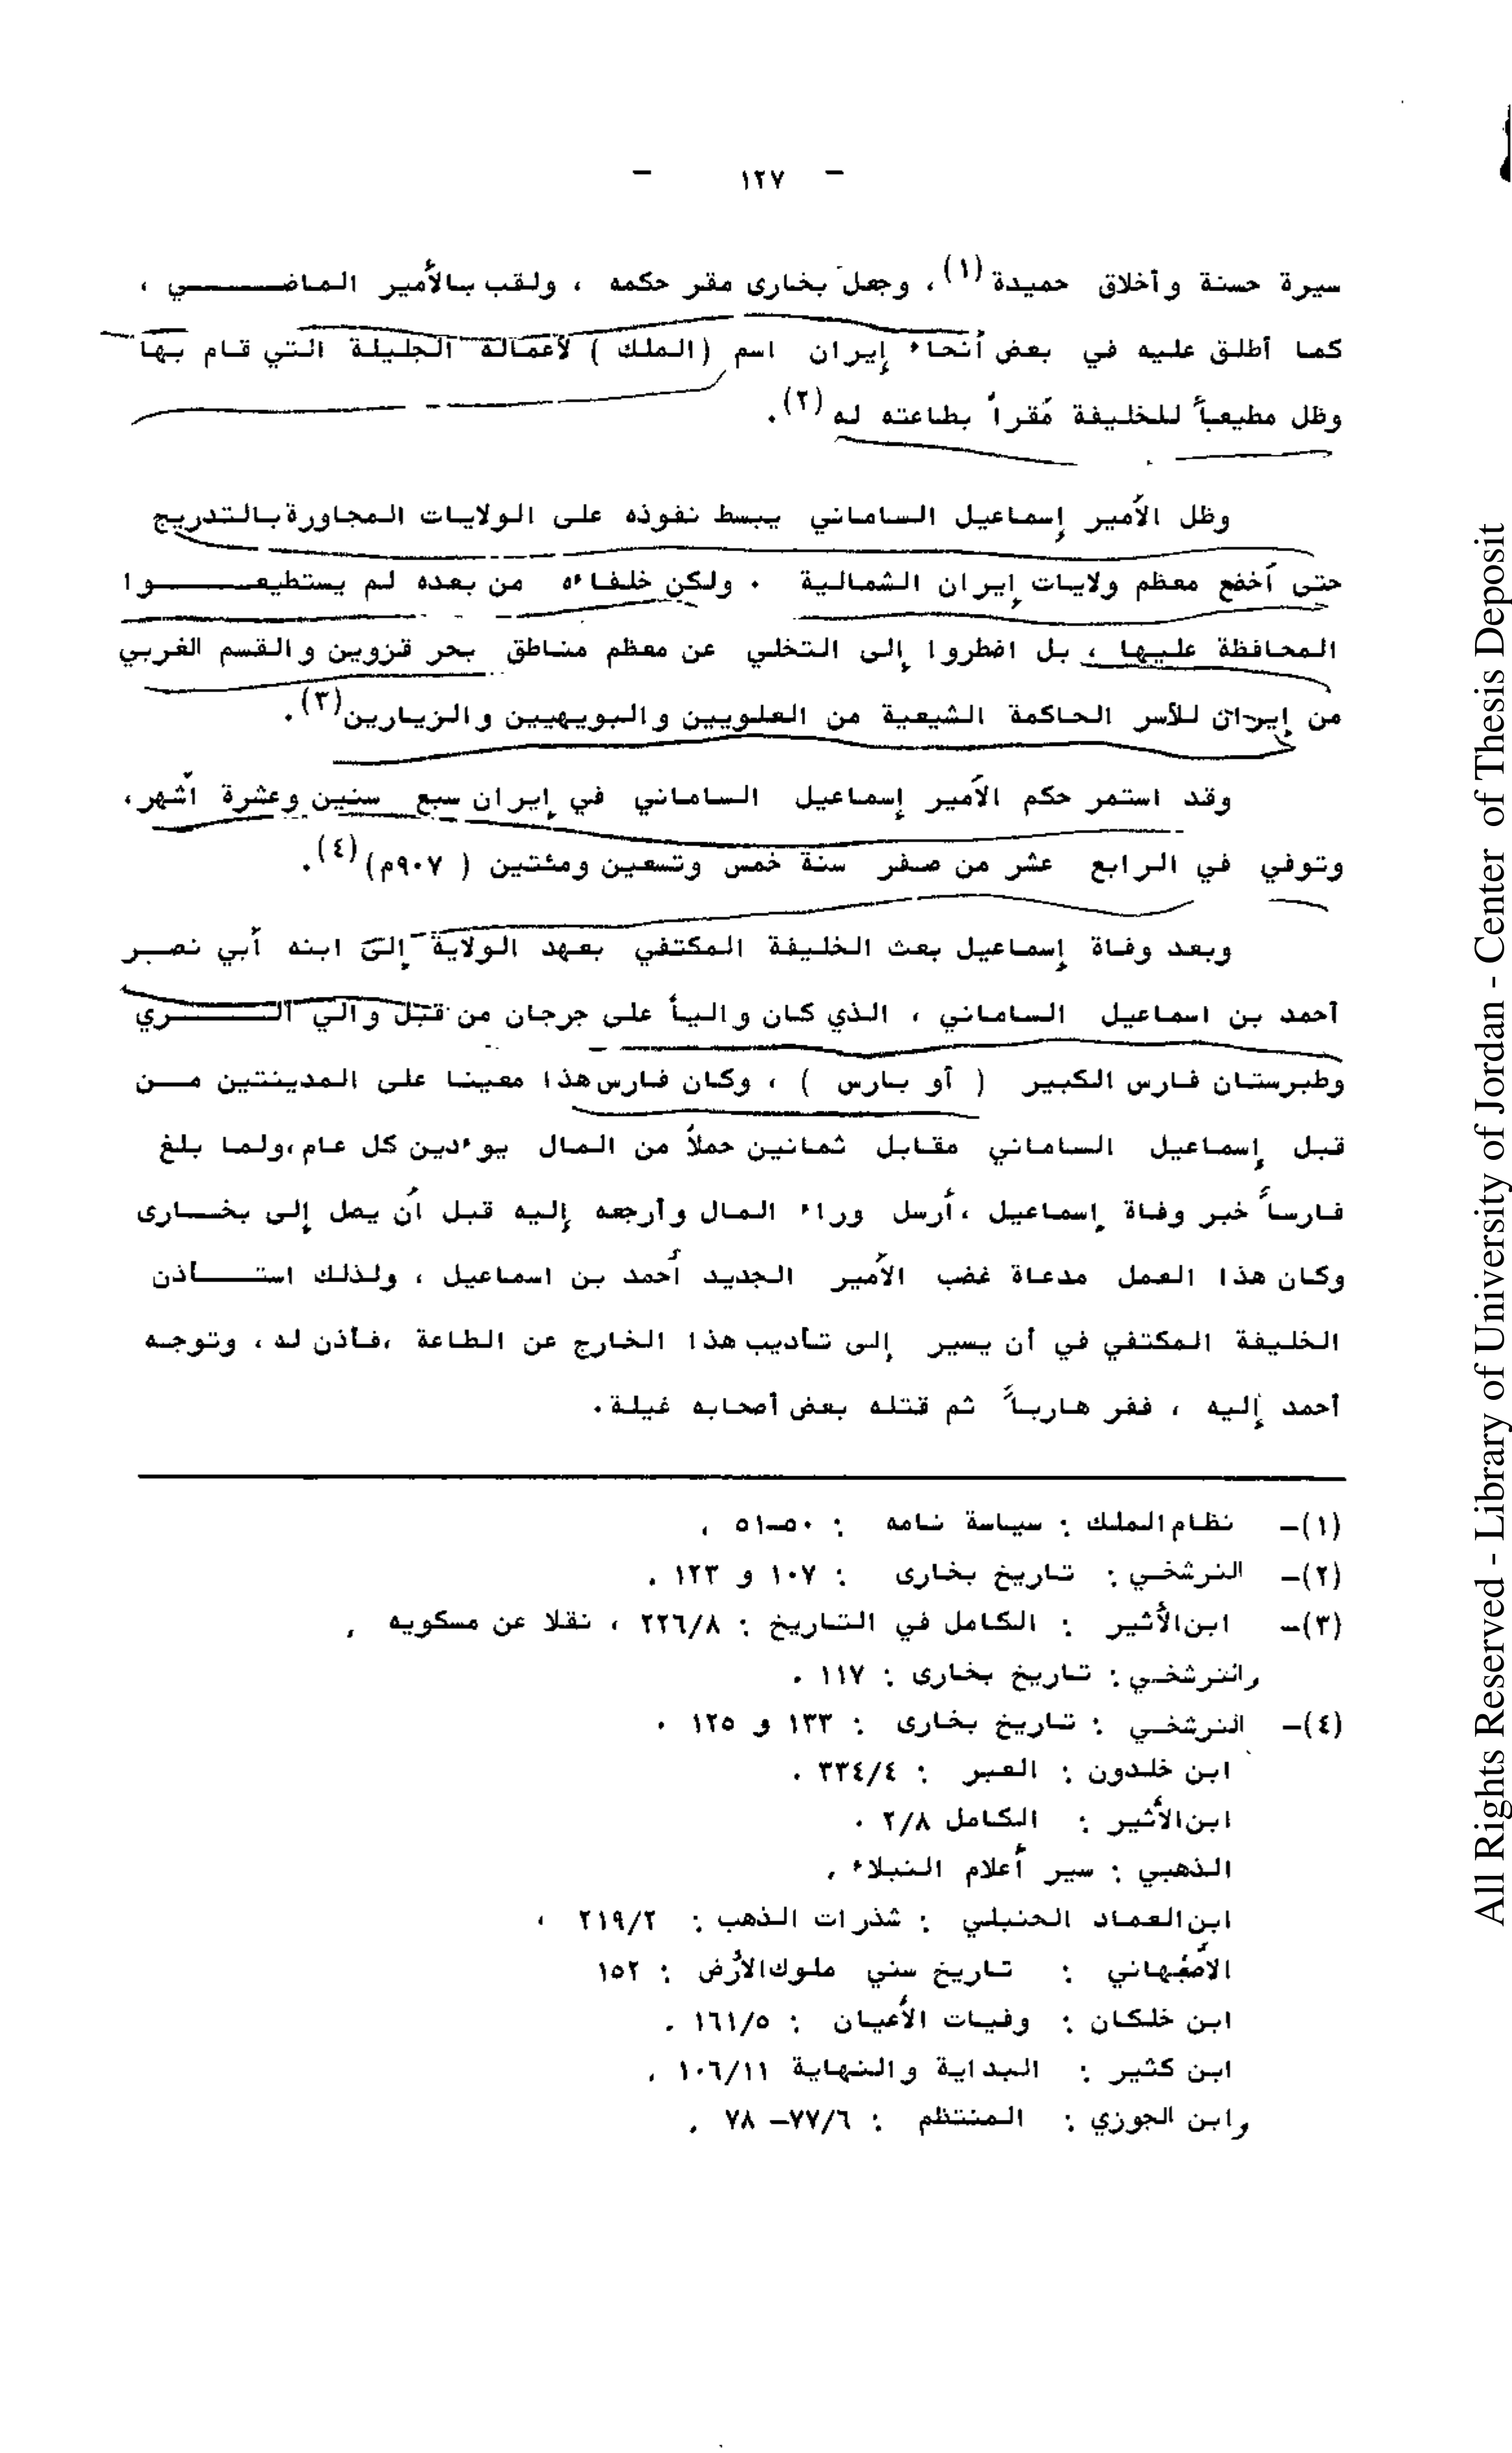 - ١٢٧ -
سيرة حسنة وأخلاق حميدة (١)، وجعل بخارى مقر حكمه ، ولقب بالأمير الماضـــــــي ،
كما أطلق عليه في بعض أنحاء إيران اسم (الملك ) لأعماله الجليلة التي قام بها
وظل مطيعاً للخليفة مُقراً بطاعته له (٢).
وظل الأمير إسماعيل الساماني يبسط نفوذه على الولايات المجاورة بالتدريج
حتى أخضع معظم ولايات إيران الشمالية . ولكن خلفاءه من بعده لم يستطيعـــــــوا
المحافظة عليها ، بل اضطروا إلى التخلي عن معظم مناطق بحر قزوين والقسم الغربي
من إيران للأسر الحاكمة الشيعية من العلويين والبويهيين والزيارين(٣).
وقد استمر حكم الأمير إسماعيل الساماني في إيران سبع سنين وعشرة أشهر،
وتوفي في الرابع عشر من صفر سنة خمس وتسعين ومئتين ( ٩٠٧م)(٤).
وبعد وفاة إسماعيل بعث الخليفة المكتفي بعهد الولاية إلى ابنه أبي نصـر
أحمد بن اسماعيل الساماني ، الذي كان والياً على جرجان من قبل والي الـــــــري
وطبرستان فارس الكبير ( أو بارس ) ، وكان فارس هذا معينا على المدينتين مــن
قبل إسماعيل الساماني مقابل ثمانين حملاً من المال يوءدين كل عام،ولما بلغ
فارساً خبر وفاة إسماعيل ،أرسل وراء المال وأرجعه إليه قبل أن يصل إلى بخــارى
وكان هذا العمل مدعاة غضب الأمير الجديد أحمد بن اسماعيل ، ولذلك استــــأذن
الخليفة المكتفي في أن يسير إلى تأديب هذا الخارج عن الطاعة ،فأذن له ، وتوجه
أحمد إليه ، ففر هارباً ثم قتله بعض أصحابه غيلة.
(١)- نظام الملك : سياسة نامه : ٥٠-٥١ ،
(٢)- النرشخي : تاريخ بخارى : ١٠٧ و ١٢٣ .
(٣)- ابن الأثير : الكامل في التاريخ : ٢٢٦/٨ ، نقلا عن مسكويه ,
والنرشخي : تاريخ بخارى : ١١٧ .
(٤)- النرشخي : تاريخ بخارى : ١٢٣ و ١٢٥ .
ابن خلدون : العبر : ٣٣٤/٤ .
ابن الأثير : الكامل ٢/٨ .
الذهبي : سير أعلام النبلاء ,
ابن العماد الحنبلي : شذرات الذهب : ٢١٩/٢ ،
الأصفهاني : تاريخ سني ملوك الأرض : ١٥٢
ابن خلكان : وفيات الأعيان : ١٦١/٥ .
ابن كثير : البداية والنهاية ١٠٦/١١ ,
وابن الجوزي : المنتظم : ٧٧/٦- ٧٨ ,
All Rights Reserved - Library of University of Jordan - Center of Thesis Deposit